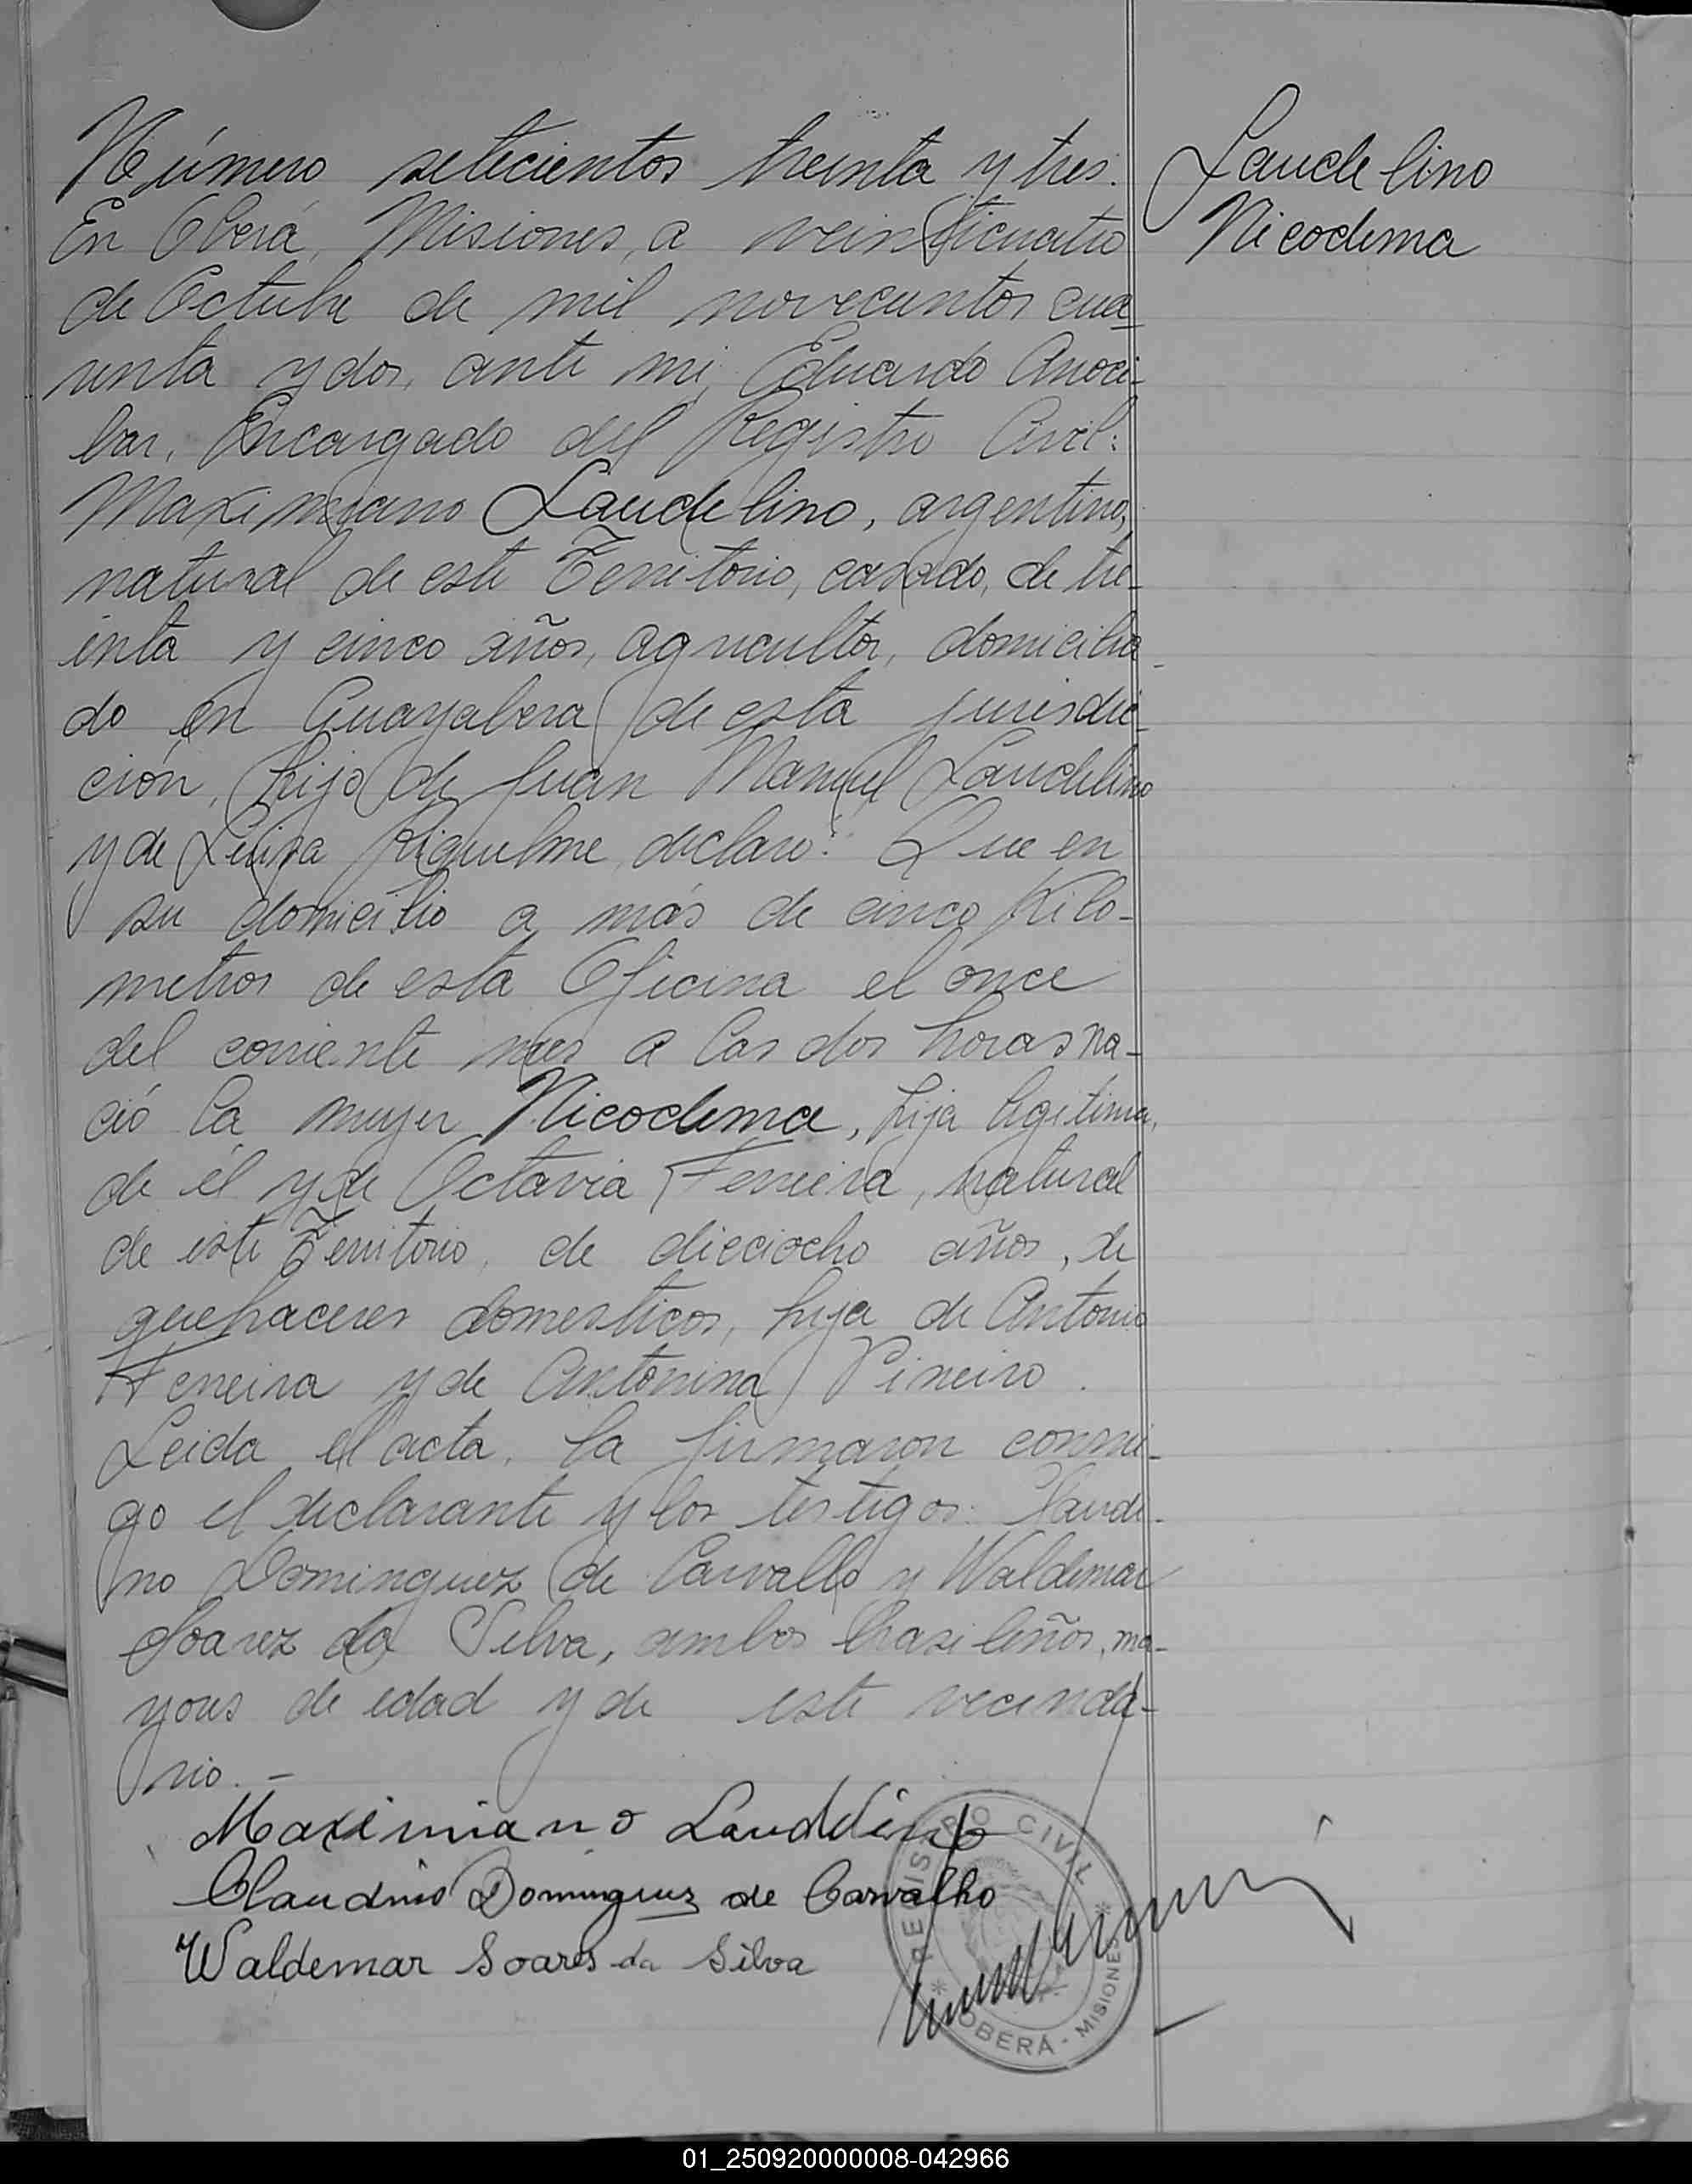 Número setecientos treinta y tres.
En Oberá, Misiones, a veinticuatro
de Octubre de mil novecientos cua-
renta y dos, ante mi, Eduardo Anoci-
bar, Encargado del Registro Civil:
Maximiano Laudelino, argentino,
natural de este Territorio, casado, de tre-
inta y cinco años, agricultor, domicilia-
do en Guayabera de esta jurisdic-
ción, hijo de Juan Manuel Laudelino
y de Luisa Riquelme, declaró: Que en
su domicilio a más de cinco Kilo-
metros de esta Oficina el once
del corriente mes a las dos horas na-
ció la mujer Nicodema, hija legitima,
de él y de Octavia Ferreira, natural
de este Territorio, de dieciocho años, de
quehaceres domesticos, hija de Antonio
Ferreira y de Antonina Pineiro.
Leida el acta, la firmaron conmi-
go el declarante y los testigos: Claudi-
no Dominguez de Carvallo y Waldemar
Soarez da Silva, ambos brasileños, ma-
yores de edad y de este vecinda-
rio.-
Laudelino
Nicodema
Maximiano Lauddino
Claudino Dominguez de Carvalho
Waldemar Soares da Silva
REGISTRO CIVIL
* OBERÁ - MISIONES *
01_250920000008-042966